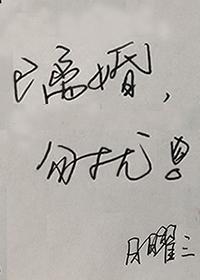 已离婚,
勿扰!
月曜三